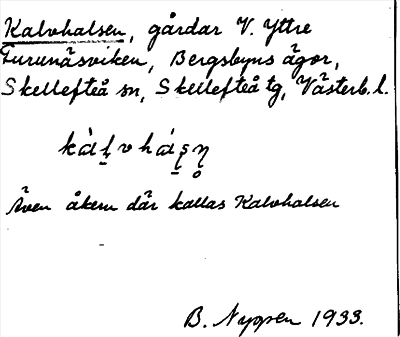 Kalvhalsen, gårdar V. Yttre
Furunäsviken, Bergsbyns ägor,
Skellefteå sn, Skellefteå tg, Västerb. l.
Även åkern där kallas Kalvhalsen
B. Nyman 1933.